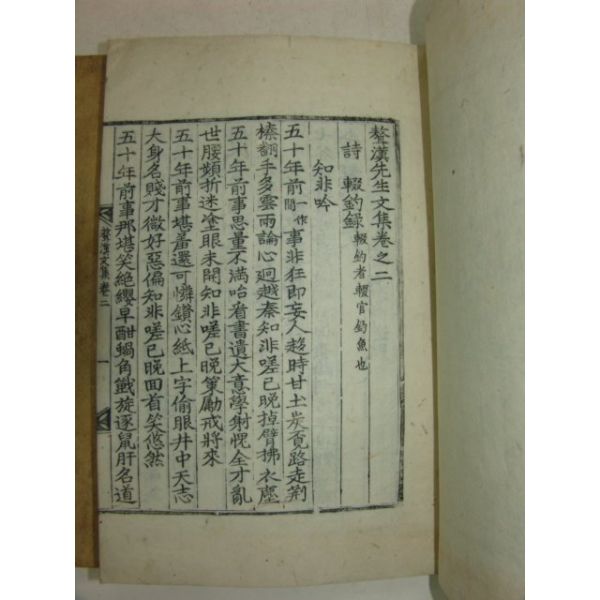 鰲漢先生文集卷之二
詩 輟釣錄 輟釣者輟官釣魚也
知非吟
五十年前一作間事非狂即妄人趍時甘土炭覓路走荆
榛翻手多雲雨論心迥越秦知非嗟已晚掉臂拂衣塵
五十年前事思量不滿咍看書遺大意學射愧全才亂
世腰頻折迷塗眼未開知非嗟已晚策勵戒將來
五十年前事堪羞還可憐鑽心紙上字偷眼井中天志
大身名賤才微好惡偏知非嗟已晚回首笑悠然
五十年前事那堪笑絶纓早酣蝸角戰旋逐鼠肝名道
文集卷二
一